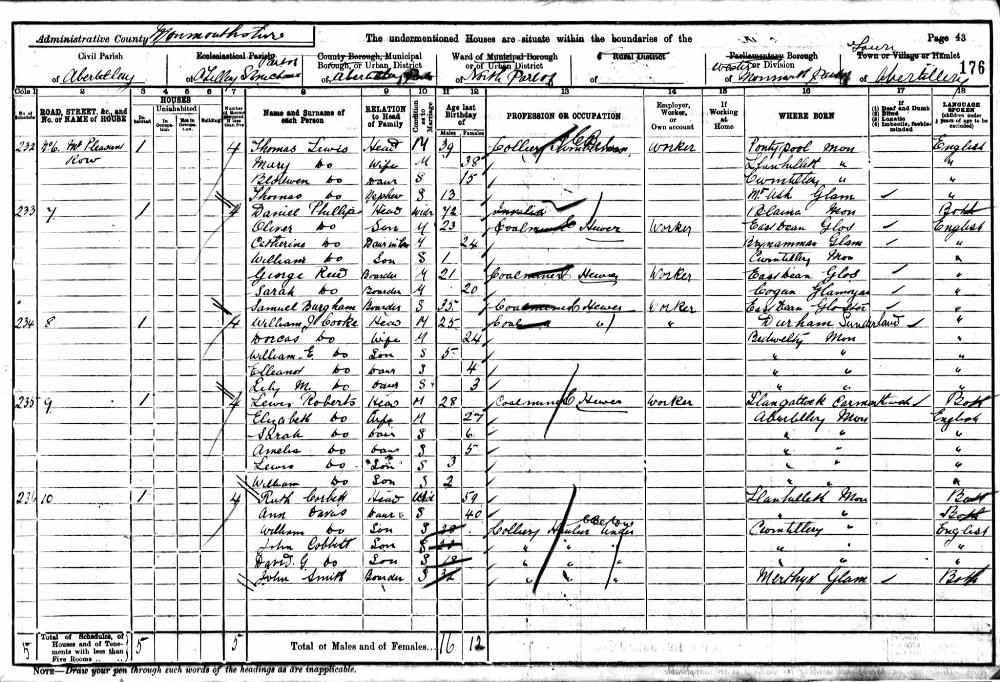 Administrative County Monmouthshire The undermentioned Houses are situate within the boundaries of the Page 43
Civil Parish Ecclesiastical Parish County Borough, Municipal Borough, or Urban District Ward of Municipal Borough or of Urban District Rural District Parliamentary Borough or Division Town or Village or Hamlet
of of of Abertillery of North Part of of of Monmouth of Abertillery 176
Cols 1 2 3 4 5 6 7 8 9 10 11 12 13 14 15 16 17 18
No. of Schedule ROAD, STREET, &c., and No. or NAME of HOUSE HOUSES Inhabited Uninhabited In Occupation Not in Occu. Building Number of Rooms occupied if less than five Name and Surname of each Person RELATION to Head of Family Condition as to Marriage Age last Birthday of Males Females PROFESSION OR OCCUPATION Employer, Worker, or Own account If Working at Home WHERE BORN If (1) Deaf and Dumb (2) Blind (3) Lunatic (4) Imbecile, feeble-minded LANGUAGE SPOKEN (children under 3 years of age to be excluded)
232 No 6. Mt Pleasant Row 1 4 Thomas Lewis Head M 39 Colliery Worker Pontypool Mon English
Mary Do Wife M 38 Llanhilleth " "
Blodwen Do Daur S 15 Cwmtillery " "
Thomas Do Nephew S 13 Mt Ash Glam "
233 7 1 4 Daniel Phillips Head Widr 72 Invalid Blaina Mon Both
Oliver Do Son M 23 Coalminer Hewer Worker East Dean Glos English
Catherine Do Daur in law M 24 Brynamman Glam "
William Do Son S 1 Cwmtillery Mon "
George Reed Boarder M 21 Coalminer Hewer Worker East Dean Glos "
Sarah Do Boarder M 20 Cogan Glamorgan "
Samuel Burgham Boarder S 35 Coalminer Hewer Worker East Dean Gloster "
234 8 1 4 William J Cooke Head M 25 Coal " " " Durham Sunderland "
Dorcas Do Wife M 24 Bedwelty Mon "
William E. Do Son S 5 " " "
Elleanor Do Daur S 4 " " "
Lily M. Do Daur S 3 " " "
235 9 1 4 Lewis Roberts Head M 28 Coalminer Hewer Worker Llangattock Both
Elizabeth Do Wife M 27 Abertillery Mon English
Sarah Do Daur S 6 " " "
Amelia Do Daur S 5 " " "
Lewis Do Son S 3 " " "
William Do Son S 2 " " "
236 10 1 4 Ruth Corbett Head Wid 59 Llanhilleth Mon Both
Ann Davis Daur S 40 " " Both
William Do Son S 28 Colliery Haulier Under Cwmtillery " English
John Cobbett Son S " " " " " "
David G. Do Son S 18 " " " " " "
John Smith Boarder S " " " Merthyr Glam Both
5 Total of Schedules, of Houses and of Tenements with less than Five Rooms 5 5 Total of Males and of Females... 16 12
NOTE—Draw your pen through such words of the headings as are inapplicable.